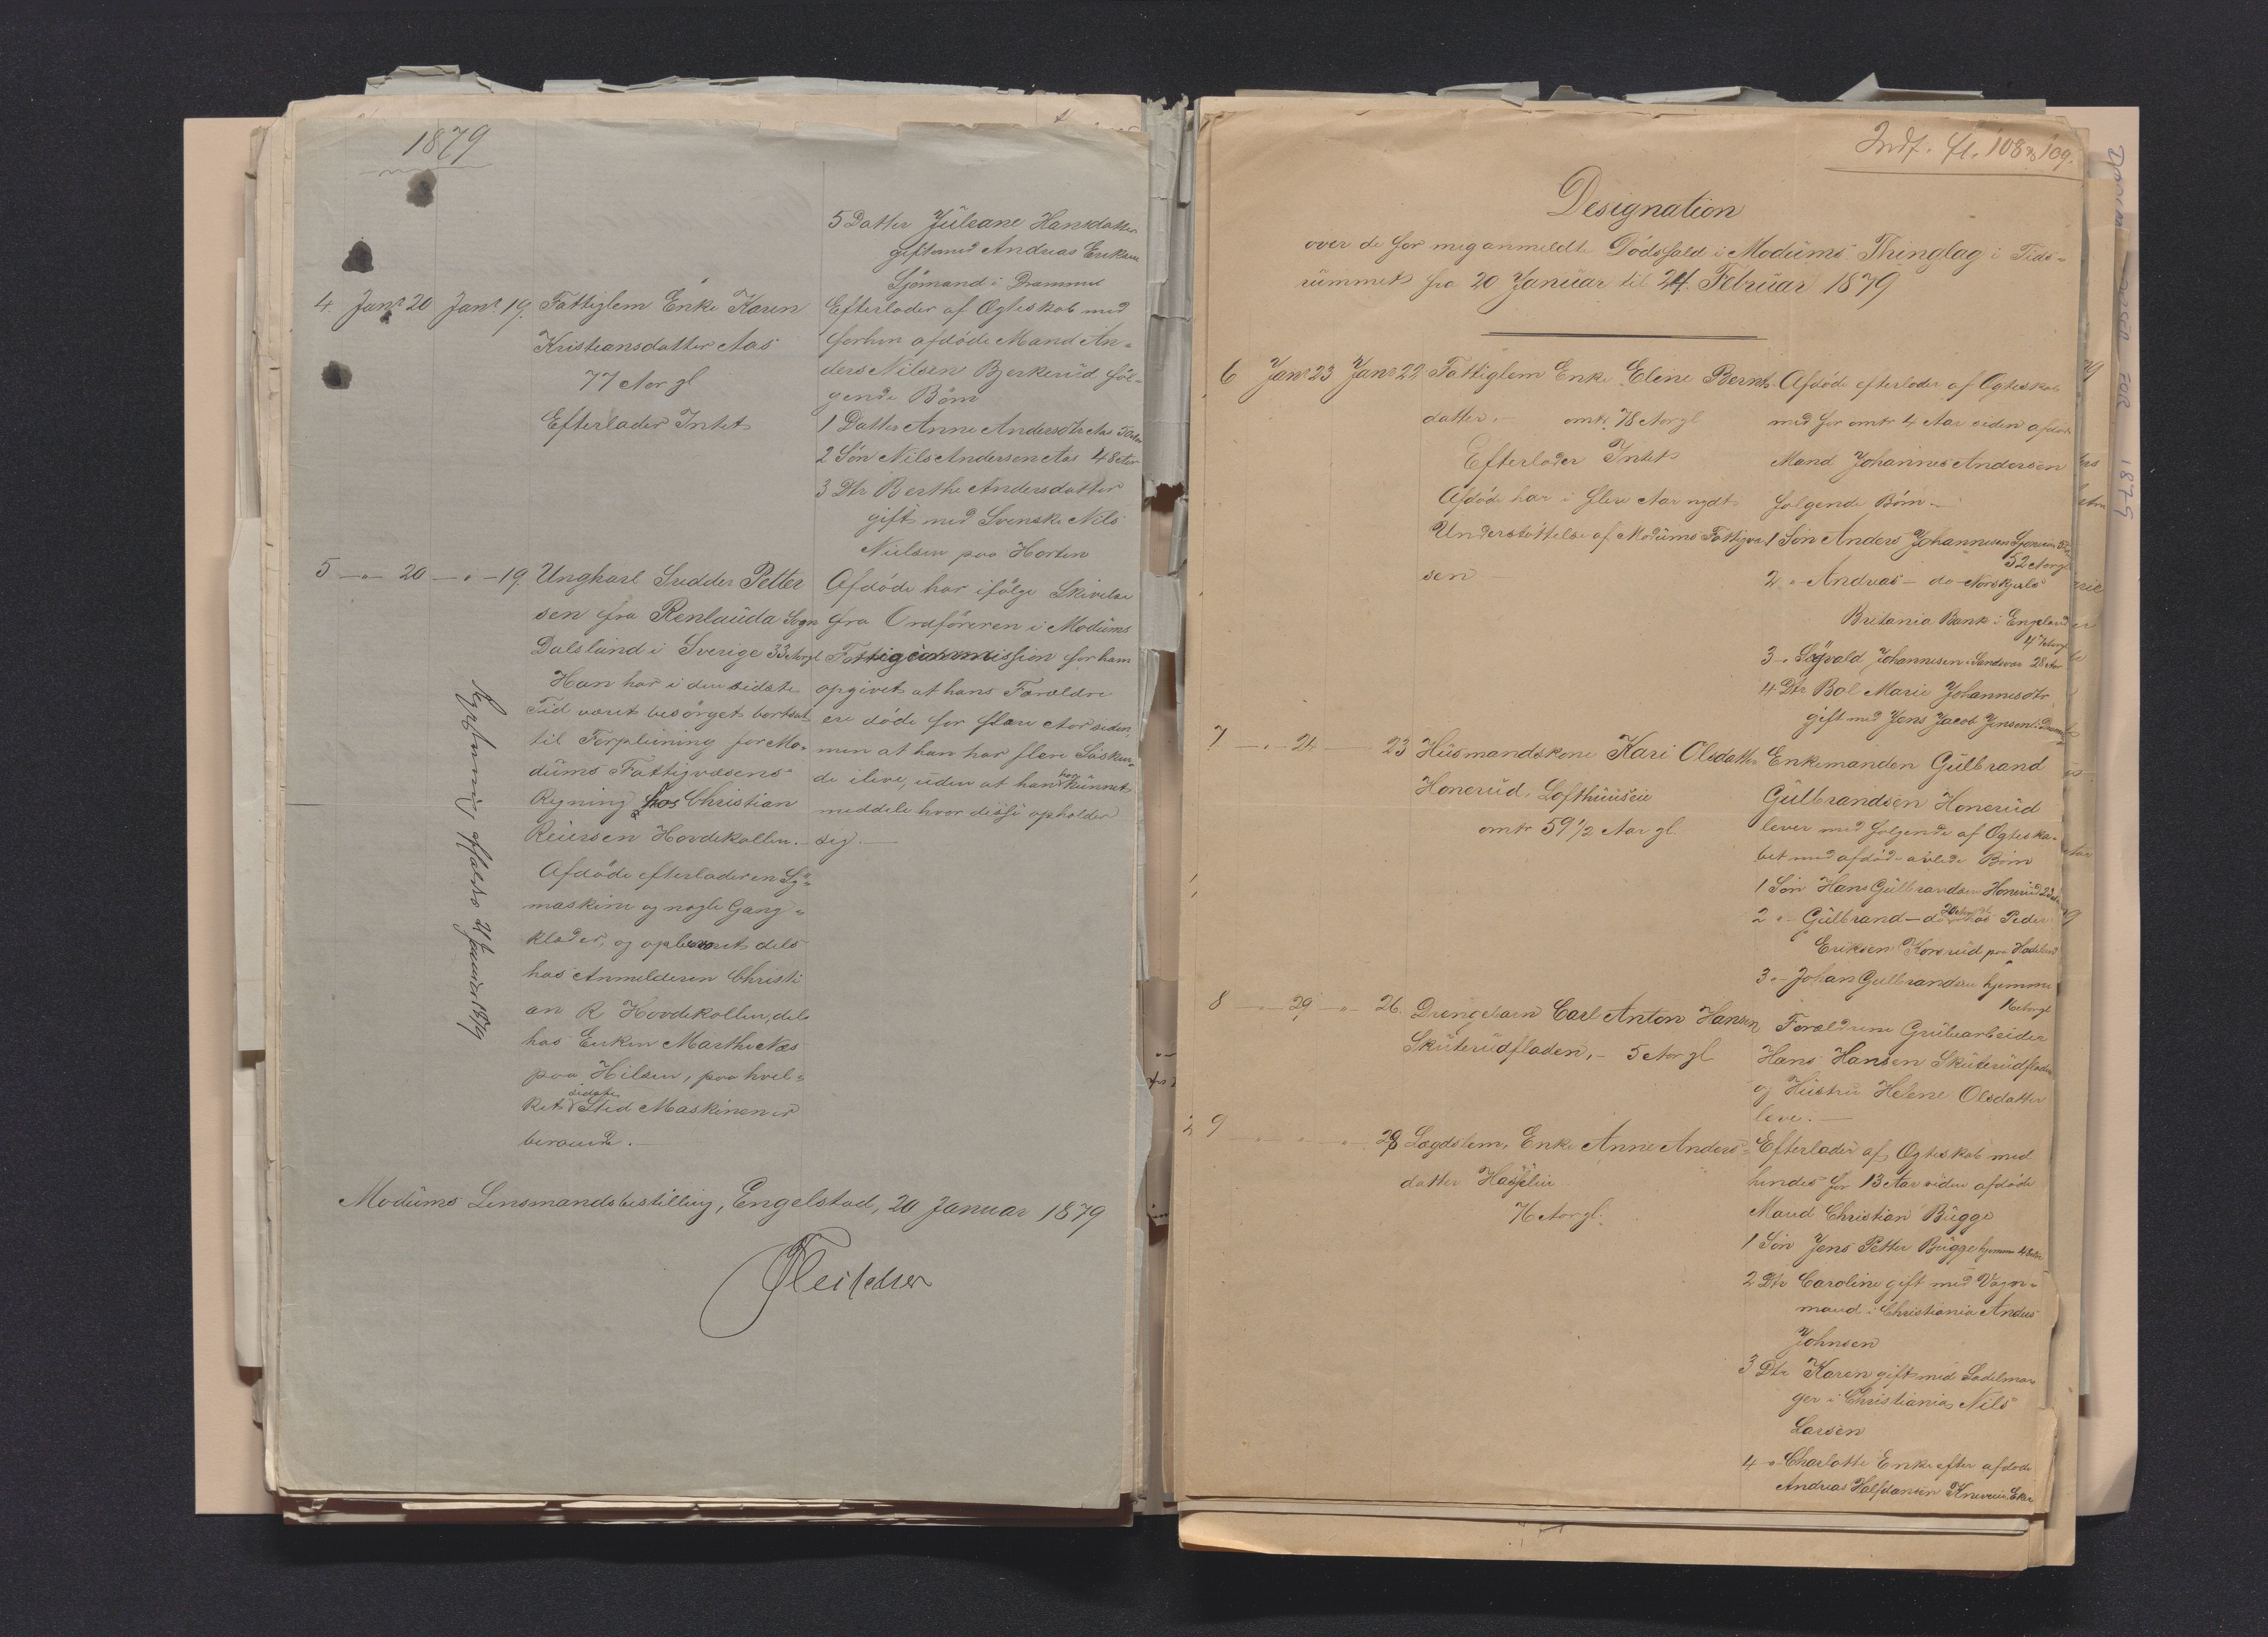 1879
5 Datter Juleane Hansdatter
gift med Andreas Eriksen
Sjömand i Drammen
4. Janr 20 Janr 19. Fattiglem Enke Karen
Kristiansdatter Aas
77 Aar gl
Efterlader Intet
Efterlader af Ægteskab med
forhen afdöde Mand An-
ders Nilsen Bjerkerud föl-
gende Börn
1 Datter Anne Andersdtr Aas
2 Sön Nils Andersen Aas 48 Aar
3 Dtr Berthe Andersdatter
gift med Svenske Nils
Nielsen paa Horten
5 —"— 20 —"— 19. Ungkarl Snedder Petter
sen fra Renlauda Sogn
Dalsland i Sverige 33 Aar gl
Han har i den sidste
Tid været besörget bortsat
til Forpleining for Mo-
dums Fattigvæsens
Regning hos Christian
Reiersen Hovdekollen.
Afdöde efterlader en Sy-
maskine og nogle Gang-
klæder, og opbevaret dels
hos Anmelderen Christi
an R Hovdekollen, dels
hos Enken Marthe Næs
paa Hilsen, paa hvil-
ket sidste Sted Maskinen er
beroende.
Afdöde har ifölge Skrivelse
fra Ordföreren i Modums
Fattigcommission for ham
opgivet at hans Forældre
ere döde for flere Aar siden,
men at han har flere Sösken-
de ilive, uden at han har kunnet
meddele hvor disse opholder
sig.
21 Januar 1879
Modums Lensmandsbestilling, Engelstad, 20 Januar 1879
Indf. fl. 108 & 109.
Designation
over de for mig anmeldte Dödsfald i Modums Thinglag i Tids-
rummet fra 20 Januar til 24. Februar 1879
6 Janr 23 Janr 22 Fattiglem Enke Elene Bernts
datter. — omtr. 78 Aar gl
Efterlader Intet
Afdöde har i flere Aar nydt
Understöttelse af Modums Fattigvæ
sen
Afdöde efterlader af Ægteskab
med for omtr 4 Aar siden afdöde
Mand Johannes Andersen
fölgende Börn
1 Sön Anders Johannesen
52 Aar gl
2 " Andreas — do —
Britania Bank i England
47 Aar gl
3 " Sigvald Johannesen i Sandsvær 28 Aar
4 Dtr Bol Marie Johannesdtr
gift med Jens Jacob Jensen i
7 —"— 24 — 23 Husmandskone Kari Olsdatter
Honerud, Lofthuuseie
omtr 59 1/2 Aar gl.
Enkemanden Gulbrand
Gulbrandsen Honerud
lever med fölgende af Ægteska-
bet med afdöde avlede Börn
1 Sön Hans Gulbrandsen Honerud
2 " — Gulbrand — do hos Peder
Eriksen Korsrud paa Hadeland
3 " — Johan Gulbrandsen hjemme
16 Aar gl
8 —"— 29 —"— 26. Drengebarn Carl Anton Hansen
Skuterudfladen, — 5 Aar gl
Forældrene Grubearbeider
Hans Hansen Skuterudfladen
og Hustru Helene Olsdatter
leve. —
9 —"— 28 Lægdslem, Enke Anne Anders-
datter
76 Aar gl.
Efterlader af Ægteskab med
hendes for 13 Aar siden afdöde
Mand Christian Bugge
1 Sön Jens Petter Bugge hjemme 48 Aar
2 Dtr Caroline gift med Vogn-
mand i Christiania Anders
Johnsen
3 Dtr Karen gift med Sadelma-
ger i Christiania Nils
Larsen
4 " Charlotte Enke efter afdöde
Andreas Halfdansen
1879